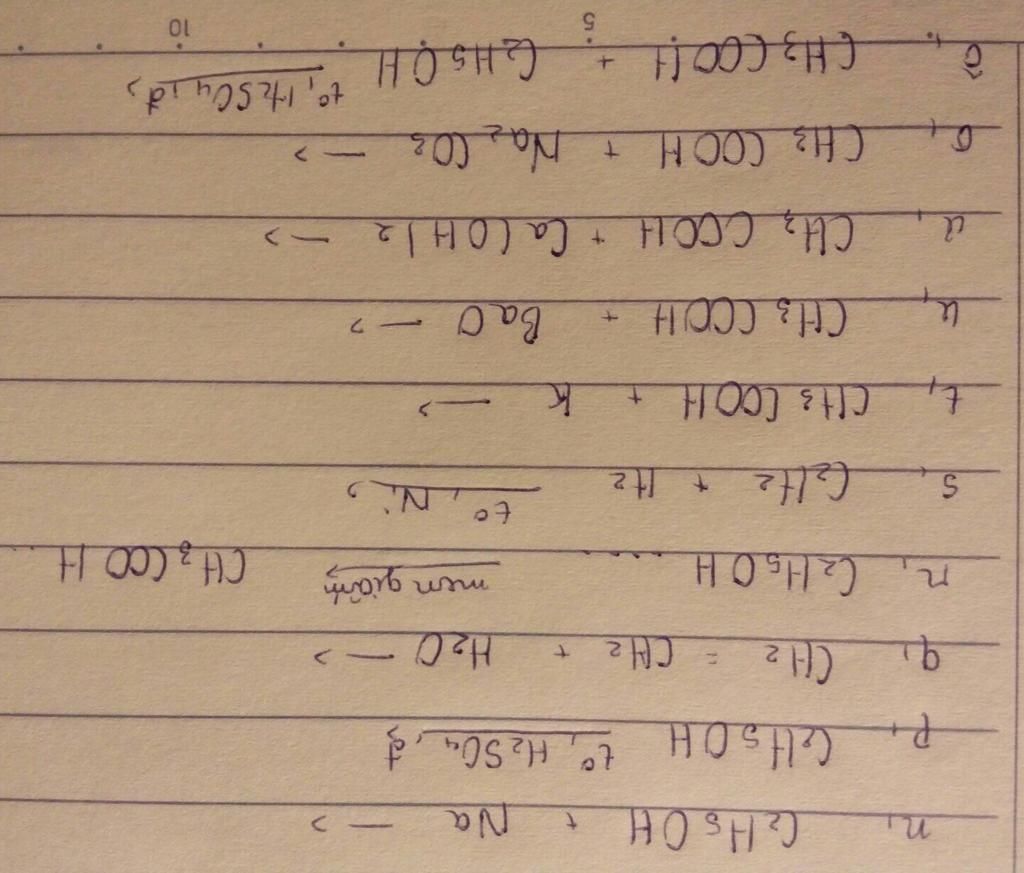 n, C2H5OH + Na —>
p, C2H5OH t°, H2SO4, đ
q, CH2 = CH2 + H2O —>
r, C2H5OH .... men giấm —> CH3COOH ...
s, C2H2 + H2 t°, Ni —>
t, CH3COOH + K —>
u, CH3COOH + BaO —>
u, CH3COOH + Ca(OH)2 —>
o, CH3COOH + Na2CO3 —>
ô, CH3COOH + C2H5OH t°, H2SO4, đ —>
5 10